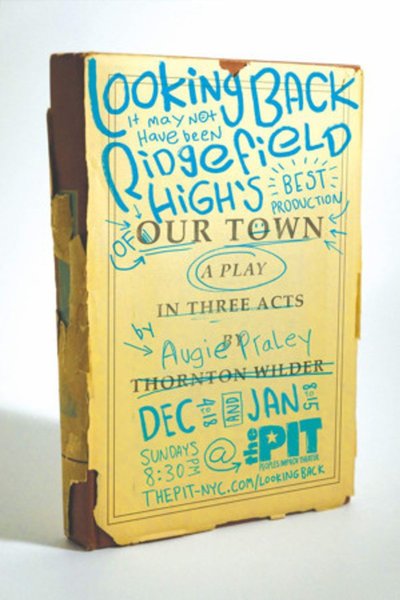 LOOKING BACK
It may not
Have been
Ridgefield
HIGH'S
BEST
PRODUCTION
OF
OUR TOWN
A PLAY
IN THREE ACTS
by
BY
Augie Praley
THORNTON WILDER
DEC 4&18 AND JAN 8&15
SUNDAYS
8:30PM
@
the PIT
PEOPLES IMPROV THEATER
THEPIT-NYC.COM/LOOKINGBACK